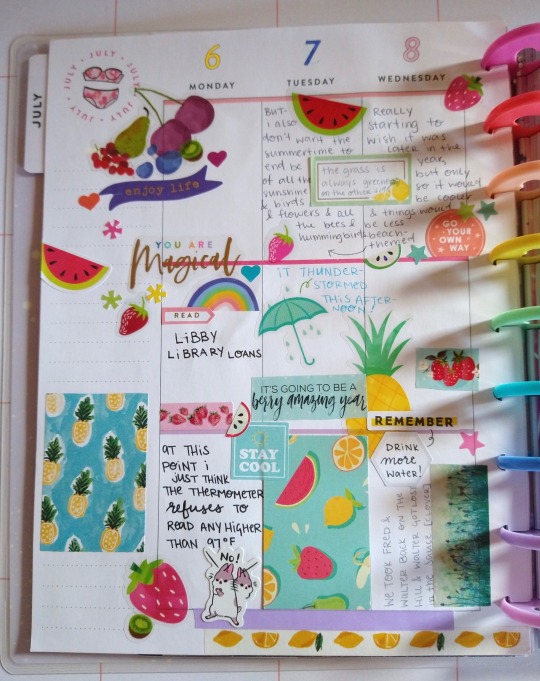 JULY
JULY · JULY · JULY · JULY ·
6
MONDAY
7
TUESDAY
8
WEDNESDAY
enjoy life
YOU ARE
Magical
READ
LiBBY
LiBRARY LOANS
AT THIS
POINT i
JUST THINK
THE THERMOMETER
REFUSES TO
READ ANY HIGHER
THAN 97°F
NO!
BUT-
i also
don't want the
summertime to
end bc
of all the
sunshine
& birds
& flowers & all
the bees &
hummingbirds
the grass is
always greener
on the other side
iT THUNDER-
STORMED
THIS AFTER-
NOON!
IT'S GOING TO BE A
berry amazing year
STAY
COOL
Really
starting to
wish it was
later in the
year,
but only
so it would
be cooler
& things would
be less
beach-
themed
GO
YOUR
OWN
WAY
REMEMBER
DRINK
more
WATER!
WE TOOK FRED &
WALTER BACK ON THE
HILL & WALTER GOT LOST
in the